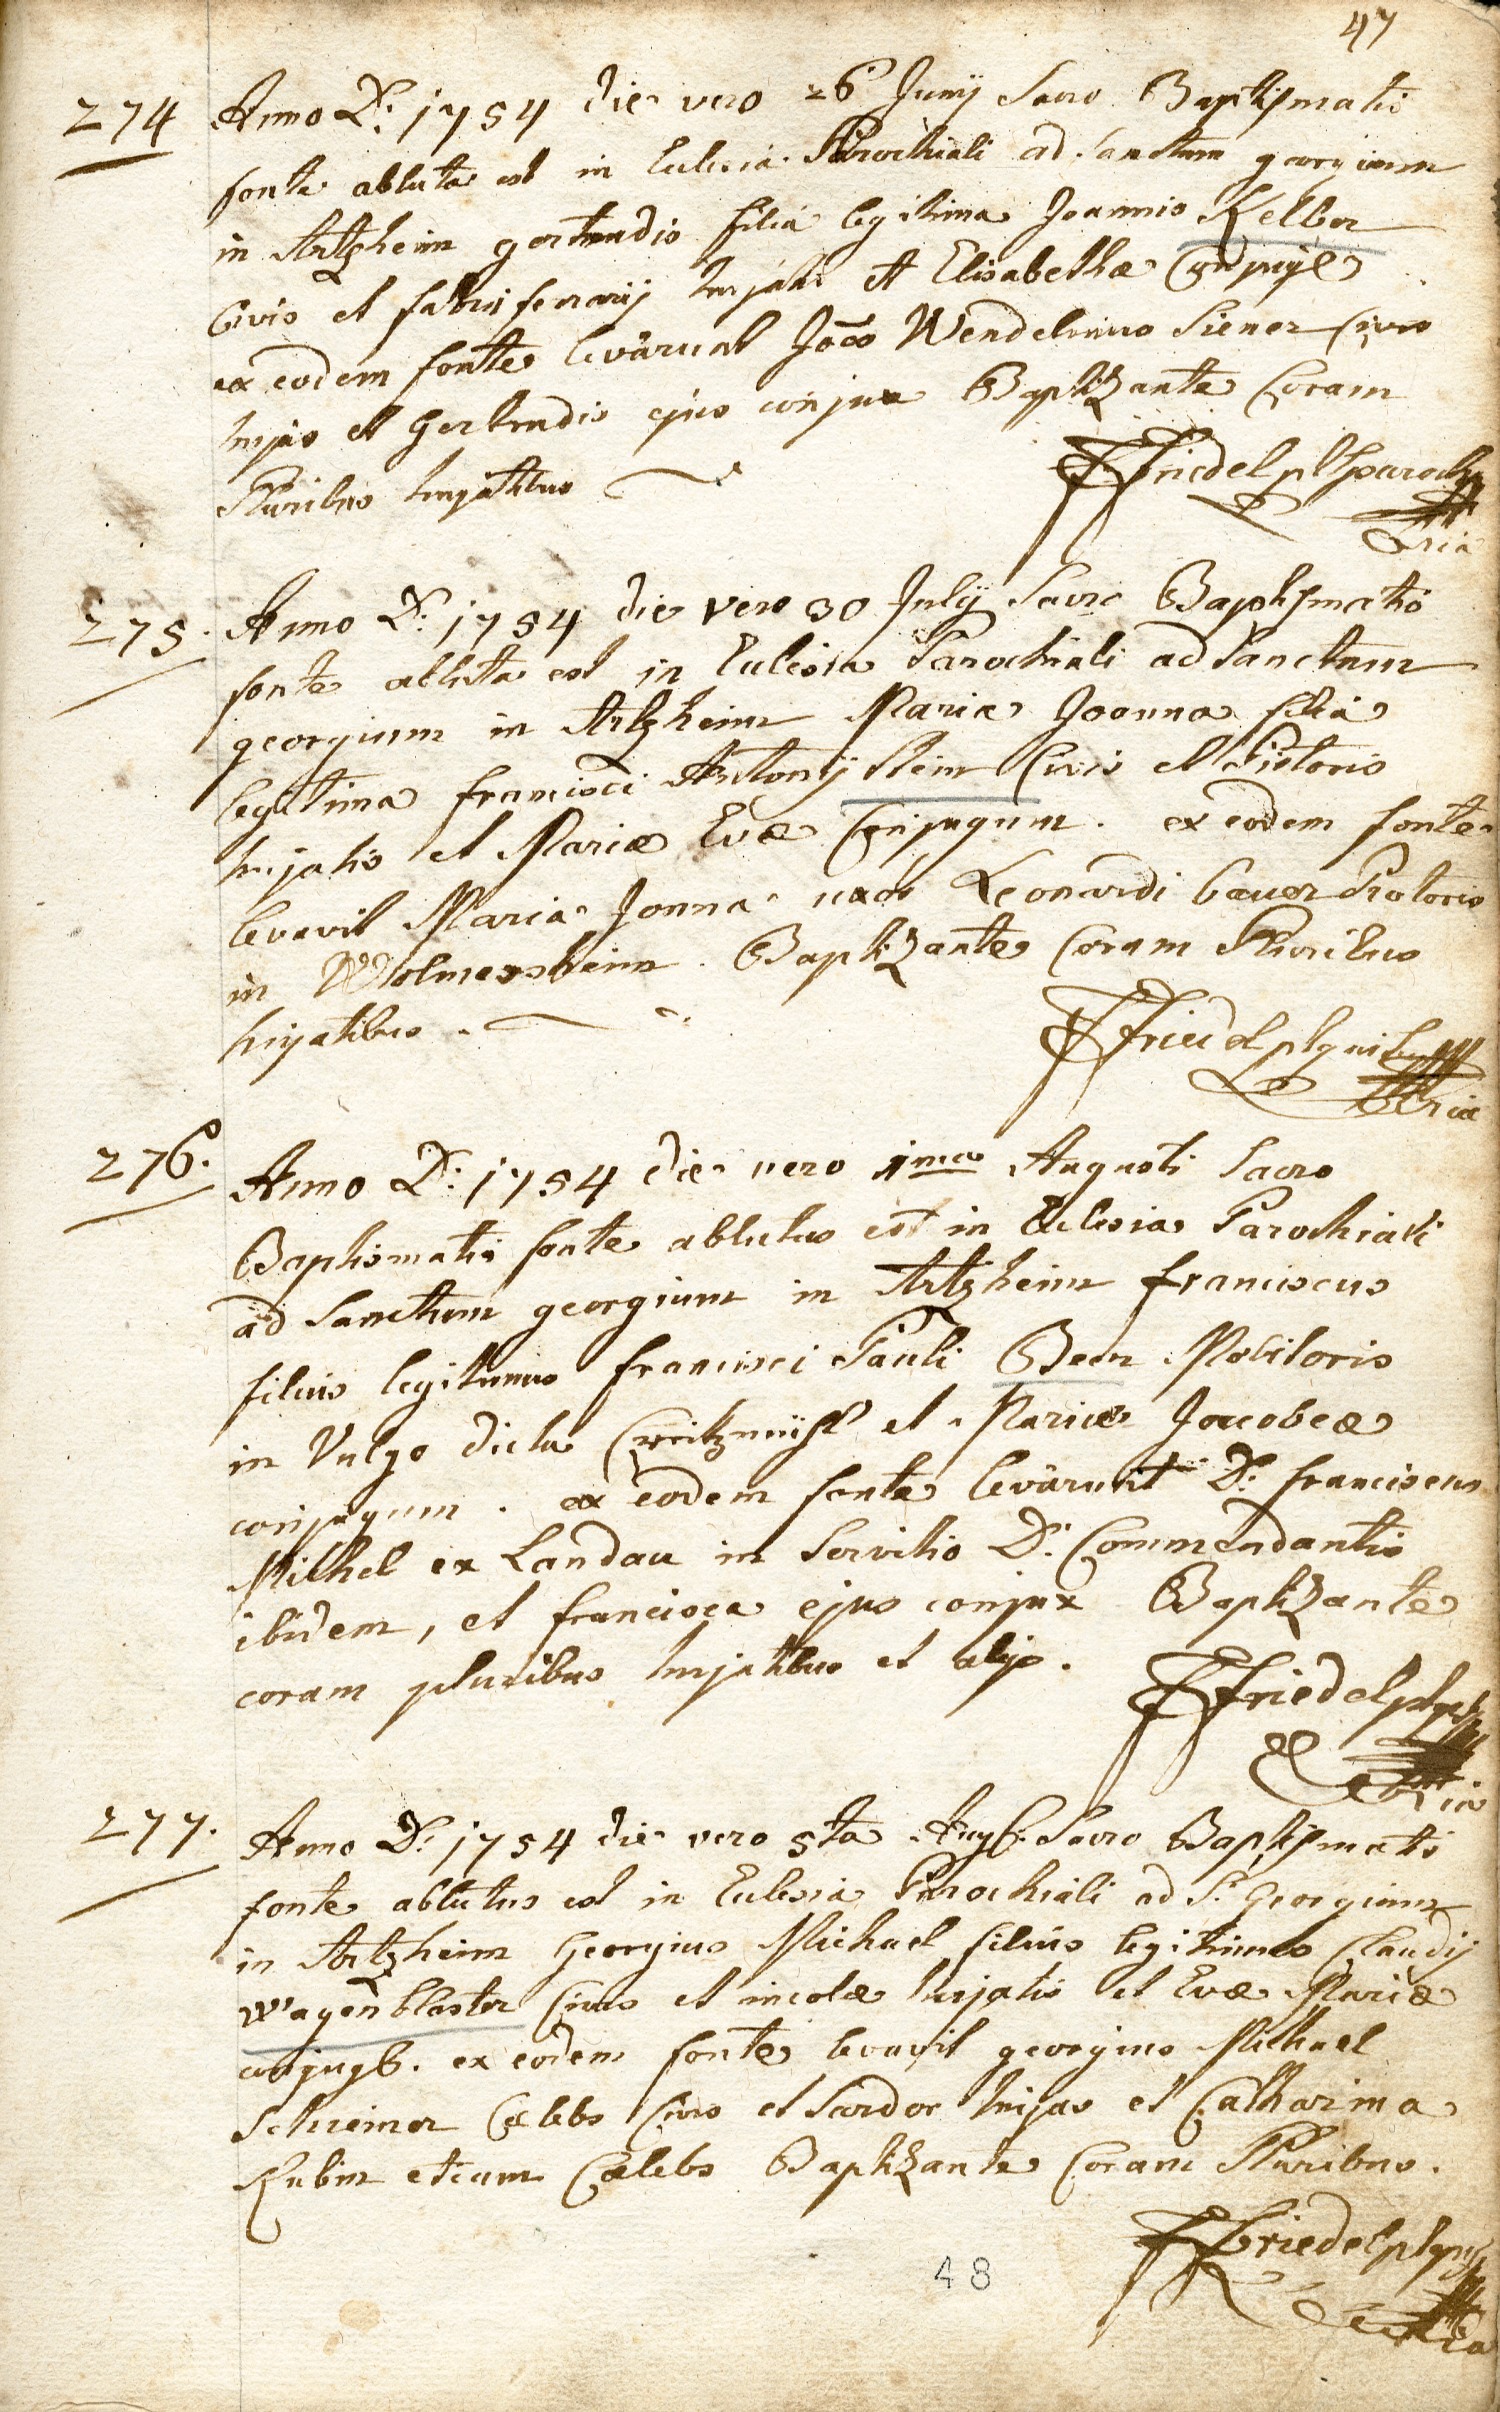 47
274 Anno D: 1754 die vero 26 Junij Sacro Baptismatis
fonte abluta est in Eclesia Parochiali ad Sanctum georgium
in Artzheim gertrudis filia legitima Joannis Keller
Civis et fabri ferrarij hujatis et Elisabethæ Conjugū
ex eodem fonte levârunt Joēs Wendelinus Siener Civis
hujas et Gertrudis ejus conjux Baptizante Coram
Pluribus hujatibus
FFriedel p l parochi
275. Anno D: 1754 die vero 30 Julij Sacro Baptismatis
fonte abluta est in Eclesia Parochiali ad Sanctum
georgium in Artzheim Maria Joanna filia
legitima francisci Antonij Klein Civis et Pistoris
hujatis et Mariæ Evæ Conjugum. ex eodem fonte
levavit Maria Jonna uxor Leonardi bauer Pistoris
in Wolmersheim. Baptizante Coram Pluribus
hujatibus.
FFriedel
276. Anno D: 1754 die vero 1ma Augusti Sacro
Baptismatis fonte ablutus est in Eclesia Parochiali
ad Sanctum georgium in Artzheim franciscus
filius legitimus francisci Pauli Beer Molitoris
in Vulgo dicta et Mariæ Jacobeæ
conjugum. ex eodem fonte levârunt D: franciscus
Milhel ex Landau in Servitio D: Commendantis
ibidem, et francisca ejus conjux Baptizante
coram pluribus hujatibus et alijs.
FFriedel
277. Anno D: 1754 die vero 5ta Augb. Sacro Baptismatis
fonte ablutus est in Eclesia Parochiali ad S. Georgium
in Artzheim Georgius Michael filius legitimus Claudij
Wagenblaster Civis et incolæ hujatis et Evæ Mariæ
conjugb. ex eodem fonte levavit georgius Michael
Schreiner Cælebs Civis et Sardor hujas et Catharina
Rubin etiam Cælebs Baptizante Coram Pluribus.
FFriedel
48